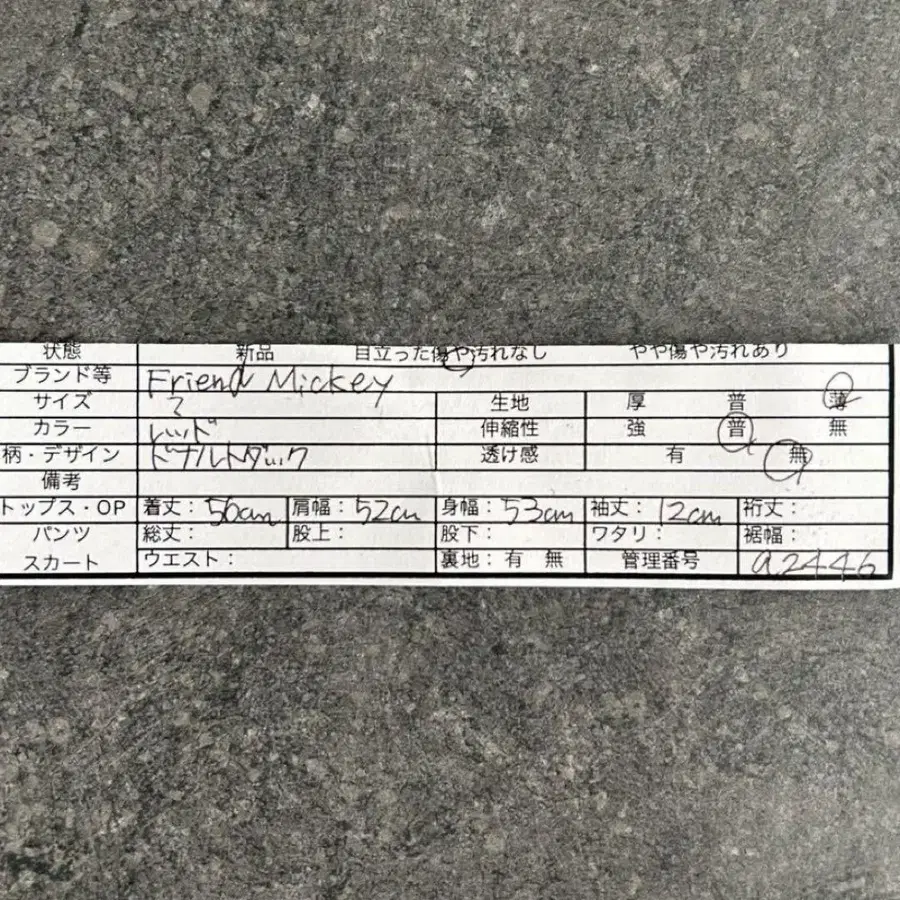 状態 新品 目立った傷や汚れなし やや傷や汚れあり
ブランド等 Friend Mickey
サイズ 生地 厚 普 薄
カラー レッド 伸縮性 強 普 無
柄・デザイン ドナルドダック 透け感 有 無
備考
トップス・OP 着丈: 56cm 肩幅: 52cm 身幅: 53cm 袖丈: 12cm 裄丈:
パンツ 総丈: 股上: 股下: ワタリ: 裾幅:
スカート ウエスト: 裏地: 有 無 管理番号 a2446